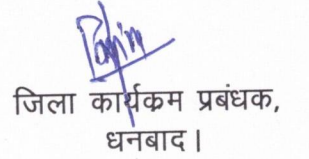 जिला कार्यकम प्रबंधक,
धनबाद।